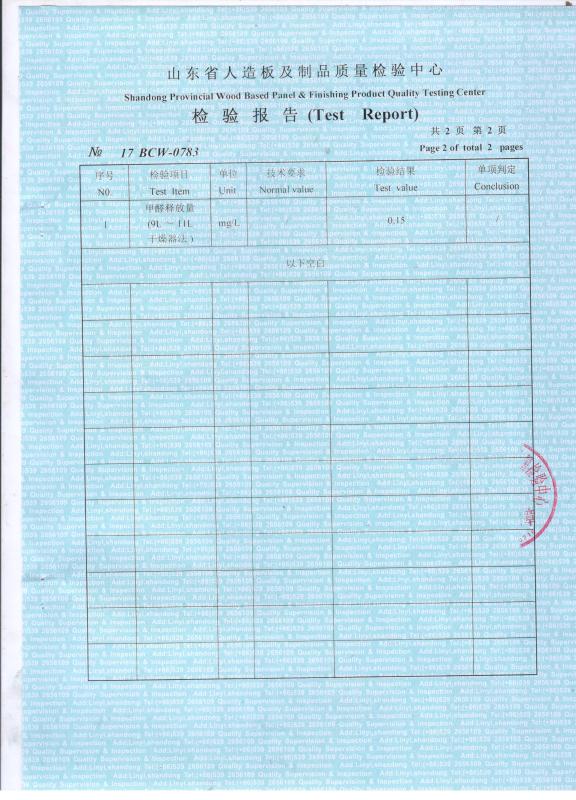 山东省人造板及制品质量检验中心
Shandong Provincial Wood Based Panel & Finishing Product Quality Testing Center
检 验 报 告 (Test Report)
共 2 页 第 2 页
№ 17 BCW-0783
Page 2 of total 2 pages
序号 检验项目 单位 技术要求 检验结果 单项判定
N0. Test Item Unit Normal value Test value Conclusion
1 甲醛释放量 (9L ~ 11L 干燥器法) mg/L / 0.15 /
以下空白
Quality Supervision & Inspection Add:Linyi,shandong Tel:(+86)539 2656109
检验中心